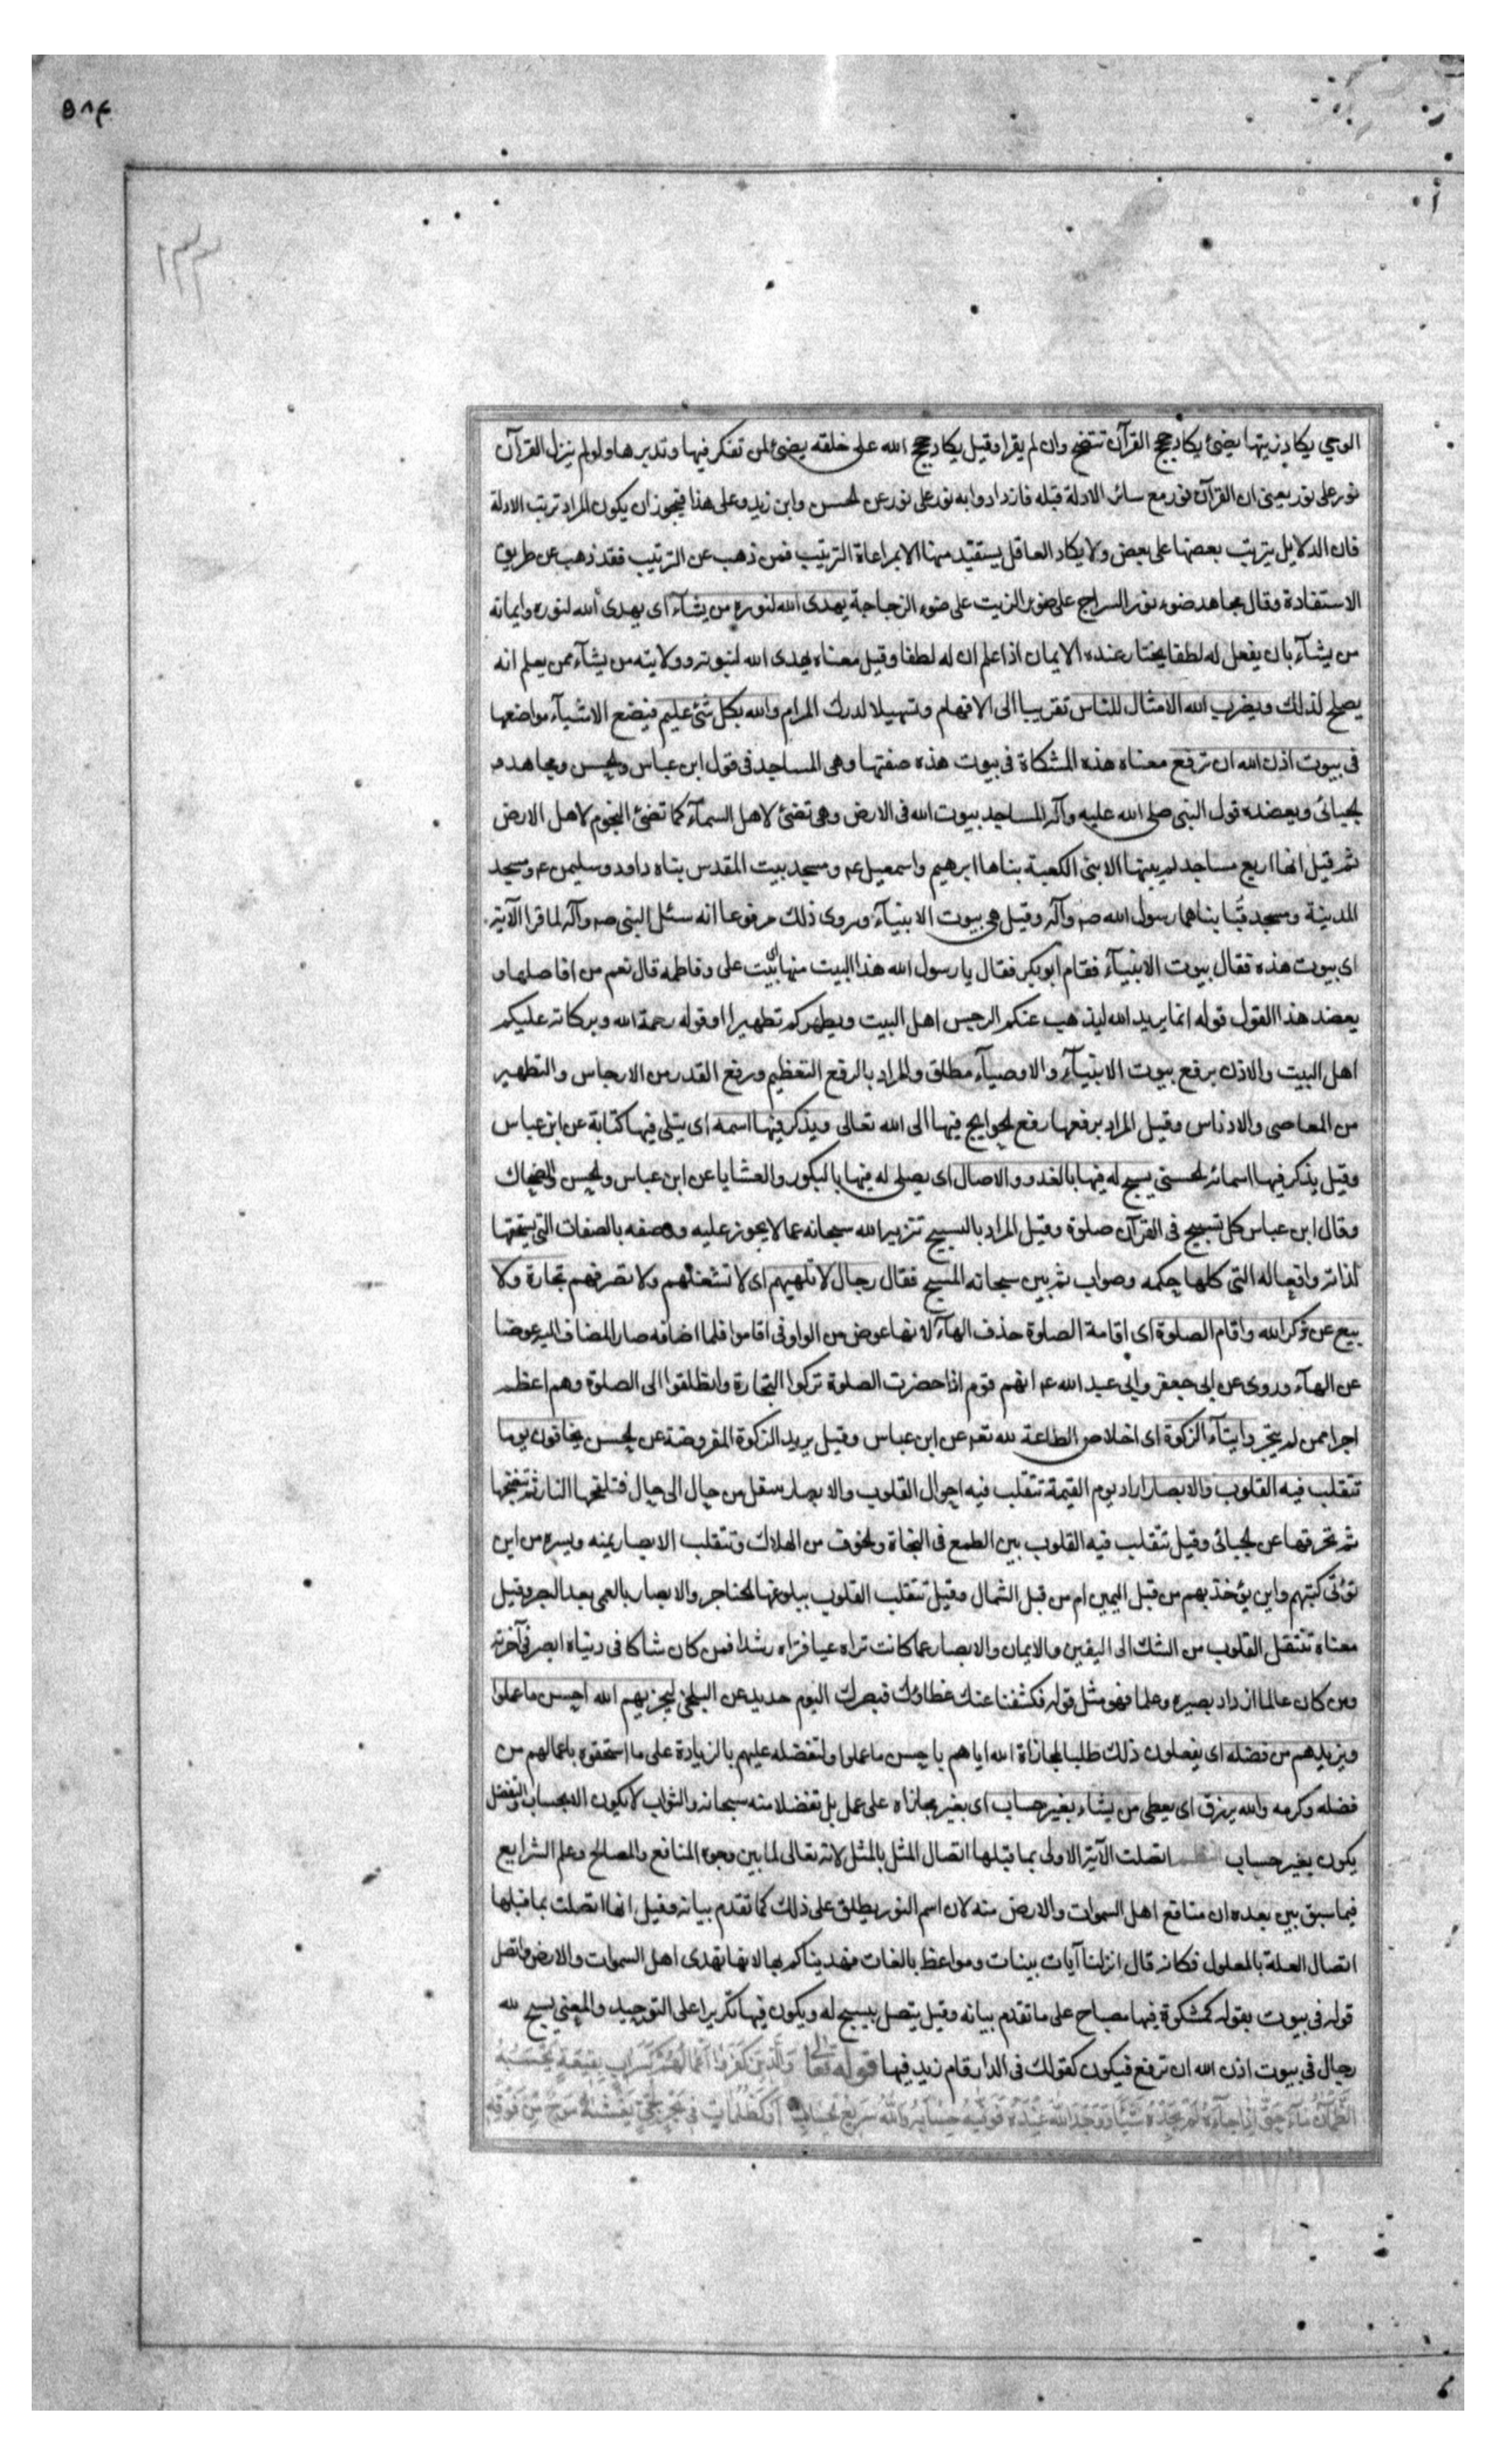 ٥٨٤
١٣٣
الوحي يكاد زيتها يضئ يكاد حجج القرآن تتضح وان لم يقرا وقيل يكاد حجج الله على خلقه يضئ لمن تفكر فيها وتدبرها ولو لم ينزل القرآن
نور على نور يعنى ان القرآن نور مع سائر الادلة قبله فازدادوا به نور على نور عن الحسن وابن زيد وعلى هذا فيجوز ان يكون المراد ترتب الادلة
فان الدلايل يترتب بعضها على بعض ولا يكاد العاقل يستفيد منها الا بمراعاة الترتيب فمن ذهب عن الترتيب فقد ذهب عن طريق
الاستفادة وقال مجاهد ضوء نور السراج على ضوء الزيت على ضوء الزجاجة يهدى الله لنوره من يشآء اى يهدى الله لنوره وايمانه
من يشآء بان يفعل له لطفا يختار عنده الايمان اذا علم ان له لطفا وقيل معناه يهدى الله لنبوته وولايته من يشآء ممن يعلم انه
يصلح لذلك ويضرب الله الامثال للناس تقريبا الى الافهام وتسهيلا لدرك المرام والله بكل شئ عليم فيضع الاشيآء مواضعها
فى بيوت اذن الله ان ترفع معناه هذه المشكاة فى بيوت هذه صفتها وهى المساجد فى قول ابن عباس والحسن ومجاهد و
الجبائى ويعضده قول النبى صلى الله عليه وآله المساجد بيوت الله فى الارض وهى تضئ لاهل السمآء كما تضئ النجوم لاهل الارض
ثم قيل انها اربع مساجد لم يبنها الا نبى الكعبة بناها ابرهيم واسمعيل ع ومسجد بيت المقدس بناه داود وسليمن ع ومسجد
المدينة ومسجد قبا بناهما رسول الله ص وآله وقيل هى بيوت الانبيآء وروى ذلك مرفوعا انه سئل النبى ص وآله لما قرا الآية
اى بيوت هذه فقال بيوت الانبيآء فقام ابو بكر فقال يا رسول الله هذا البيت منها اى بيت على وفاطمه قال نعم من افاضلها و
يعضد هذا القول قوله انما يريد الله ليذهب عنكم الرجس اهل البيت ويطهركم تطهيرا وقوله رحمة الله وبركاته عليكم
اهل البيت والاذن برفع بيوت الانبيآء والاوصيآء مطلق والمراد بالرفع التعظيم ورفع القدر من الارجاس والتطهير
من المعاصى والادناس وقيل المراد برفعها رفع الحوايج فيها الى الله تعالى ويذكر فيها اسمه اى يتلى فيها كتابه عن ابن عباس
وقيل يذكر فيها اسمائه الحسنى يسبح له فيها بالغدو والاصال اى يصلى له فيها بالبكور والعشايا عن ابن عباس والحسن والضحاك
وقال ابن عباس كل تسبيح فى القرآن صلوة وقيل المراد بالتسبيح تنزيه الله سبحانه عما لا يجوز عليه ووصفه بالصفات التى يستحقها
لذاته وافعاله التى كلها حكمه وصواب ثم بين سبحانه المسبح فقال رجال لا تلهيهم اى لا تشغلهم ولا تصرفهم تجارة ولا
بيع عن ذكر الله واقام الصلوة اى اقامة الصلوة حذف الهآء لانها عوض من الواو فى اقاموا فلما اضافه صار المضاف اليه عوضا
عن الهآء وروى عن ابى جعفر وابى عبد الله ع انهم قوم اذا حضرت الصلوة تركوا التجارة وانطلقوا الى الصلوة وهم اعظم
اجرا ممن لم يتجر وايتآء الزكوة اى اخلاص الطاعة لله تعم عن ابن عباس وقيل يريد الزكوة المفروضة عن الحسن يخافون يوما
تتقلب فيه القلوب والابصار اراد يوم القيمة تتقلب فيه احوال القلوب والابصار وتنتقل من حال الى حال فتلفحها النار ثم تنضجها
ثم تحرقها عن الجبائى وقيل تتقلب فيه القلوب بين الطمع فى النجاة والخوف من الهلاك وتتقلب الابصار يمنه ويسره من اين
تؤتى كتبهم واين يؤخذ بهم من قبل اليمين ام من قبل الشمال وقيل تتقلب القلوب ببلوغها الحناجر والابصار بالعمى بعد البصر وقيل
معناه تنتقل القلوب من الشك الى اليقين والايمان والابصار عما كانت تراه غيا فتراه رشدا فمن كان شاكا فى دنياه ابصر فى آخرته
ومن كان عالما ازداد بصيره وعلما فهو مثل قوله فكشفنا عنك غطاؤك فبصرك اليوم حديد عن البلخى ليجزيهم الله احسن ما عملوا
ويزيدهم من فضله اى يفعلون ذلك طلبا لمجازاة الله اياهم باحسن ما عملوا ولتفضله عليهم بالزيادة على ما استحقوه باعمالهم من
فضله وكرمه والله يرزق اى يعطى من يشاء بغير حساب اى بغير مجازاه على عمل بل تفضلا منه سبحانه والثواب لا يكون الا بحساب والتفضل
يكون بغير حساب النظم اتصلت الآية الاولى بما قبلها اتصال المثل بالمثل لانه تعالى لما بين وجوه المنافع والمصالح وعلم الشرايع
فيما سبق بين بعده ان منافع اهل السموات والارض منه لان اسم النور يطلق على ذلك كما تقدم بيانه وقيل انها اتصلت بما قبلها
اتصال العلة بالمعلول فكانه قال انزلنا آيات بينات ومواعظ بالغات فهديناكم بها لانها تهدى اهل السموات والارض واتصل
قوله فى بيوت بقوله كمشكوة فيها مصباح على ما تقدم بيانه وقيل يتصل بيسبح له ويكون فيها تكريرا على التوحيد والمعنى يسبح لله
رجال فى بيوت اذن الله ان ترفع فيكون كقولك فى الدار قام زيد فيها قوله تعالى وَالَّذِينَ كَفَرُوا أَعْمَالُهُمْ كَسَرَابٍ بِقِيعَةٍ يَحْسَبُهُ
الظَّمْآنُ مَآءً حَتَّى إِذَا جَآءَهُ لَمْ يَجِدْهُ شَيْئًا وَوَجَدَ اللهَ عِنْدَهُ فَوَفَّيهُ حِسَابَهُ وَاللهُ سَرِيعُ الْحِسَابِ أَوْ كَظُلُمَاتٍ فِى بَحْرٍ لُجِّىٍّ يَغْشَيهُ مَوْجٌ مِنْ فَوْقِهِ